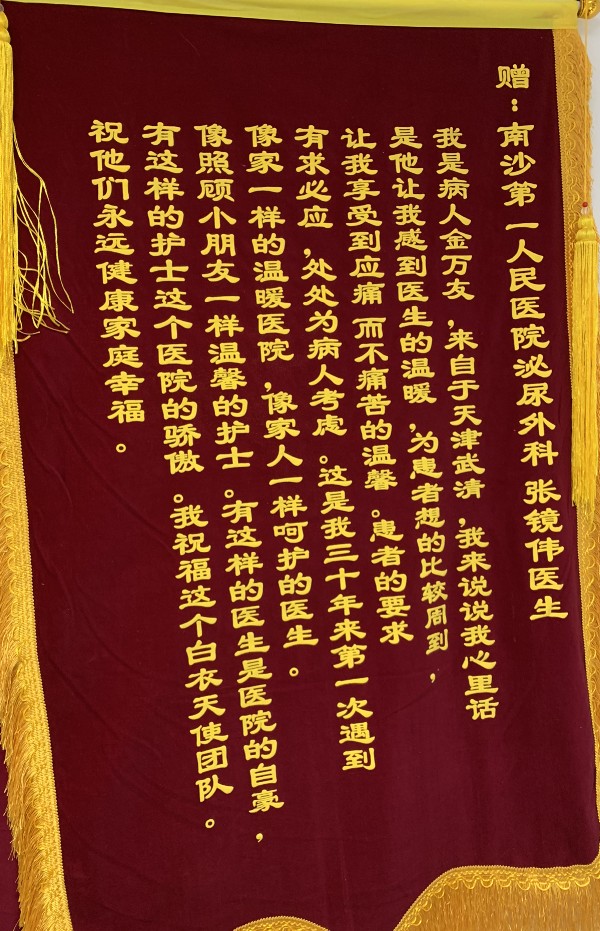 赠：南沙第一人民医院泌尿外科 张镜伟医生
我是病人金万友，来自于天津武清，我来说说我心里话
是他让我感到医生的温暖，为患者想的比较周到，
让我享受到应痛 而不痛苦的温馨。患者的要求
有求必应，处处为病人考虑。这是我三十年来第一次遇到
像家一样的温暖医院，像家人一样呵护的医生。
像照顾小朋友一样温馨的护士。有这样的医生是医院的自豪，
有这样的护士这个医院的骄傲。我祝福这个白衣天使团队。
祝他们永远健康家庭幸福。